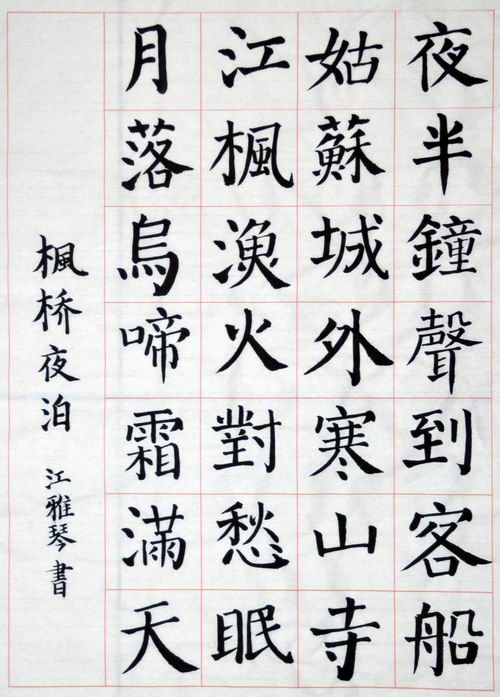 楓桥夜泊
江雅琴書
月落烏啼霜滿天
江楓漁火對愁眠
姑蘇城外寒山寺
夜半鐘聲到客船